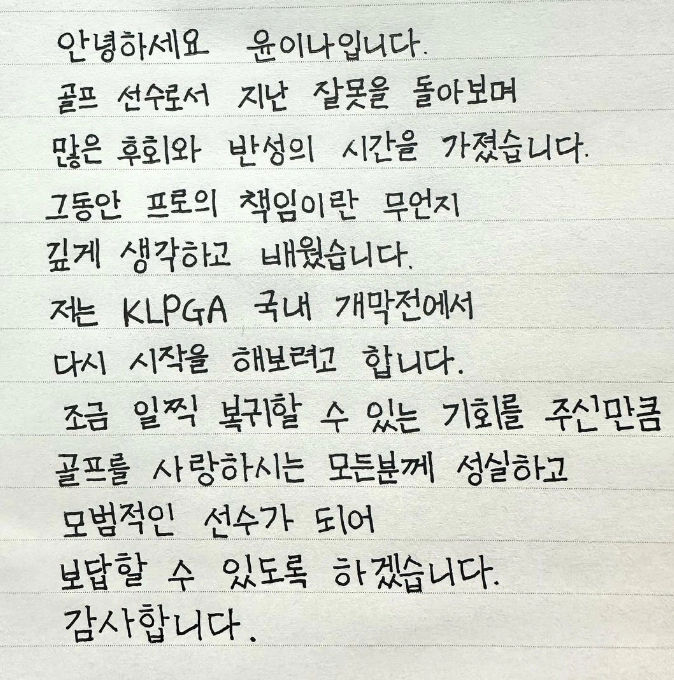 안녕하세요 윤이나입니다.
골프 선수로서 지난 잘못을 돌아보며
많은 후회와 반성의 시간을 가졌습니다.
그동안 프로의 책임이란 무언지
깊게 생각하고 배웠습니다.
저는 KLPGA 국내 개막전에서
다시 시작을 해보려고 합니다.
조금 일찍 복귀할 수 있는 기회를 주신만큼
골프를 사랑하시는 모든분께 성실하고
모범적인 선수가 되어
보답할 수 있도록 하겠습니다.
감사합니다.